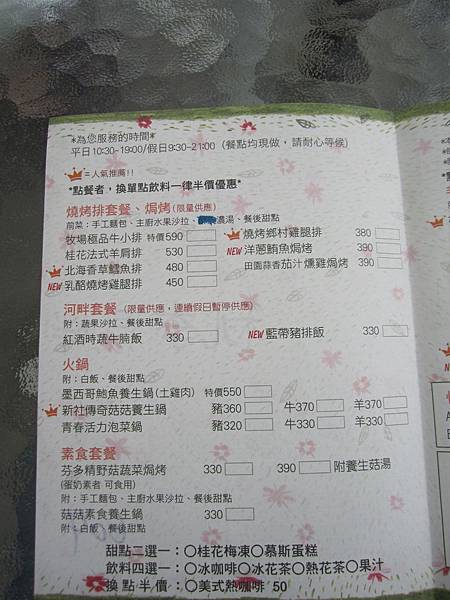 *為您服務的時間*
平日10:30-19:00/假日9:30-21:00 (餐點均現做，請耐心等候)
=人氣推薦!!
*點餐者，換單點飲料一律半價優惠*
燒烤排套餐、焗烤(限量供應)
前菜：手工麵包、主廚水果沙拉、濃湯、餐後甜點
牧場極品牛小排 特價590
桂花法式羊肩排 530
北海香草鱈魚排 480
NEW 乳酪燒烤雞腿排 450
燒烤鄉村雞腿排 380
NEW 洋蔥鮪魚焗烤 390
田園蒜香茄汁燻雞焗烤 390
河畔套餐 (限量供應，連續假日暫停供應)
附：蔬果沙拉、餐後甜點
紅酒時蔬牛腩飯 330
NEW 藍帶豬排飯 330
火鍋
附：白飯、餐後甜點
墨西哥鮑魚養生鍋(土雞肉) 特價550
新社傳奇菇菇養生鍋 豬360 牛370 羊370
青春活力泡菜鍋 豬320 牛330 羊330
素食套餐
芬多精野菇蔬菜焗烤 330 390 附養生菇湯
(蛋奶素者 可食用)
附：手工麵包、主廚水果沙拉、餐後甜點
菇菇素食養生鍋 330
附：白飯、餐後甜點
甜點二選一：○桂花梅凍○慕斯蛋糕
飲料四選一：○冰咖啡○冰花茶○熱花茶○果汁
換點半價：○美式熱咖啡 50